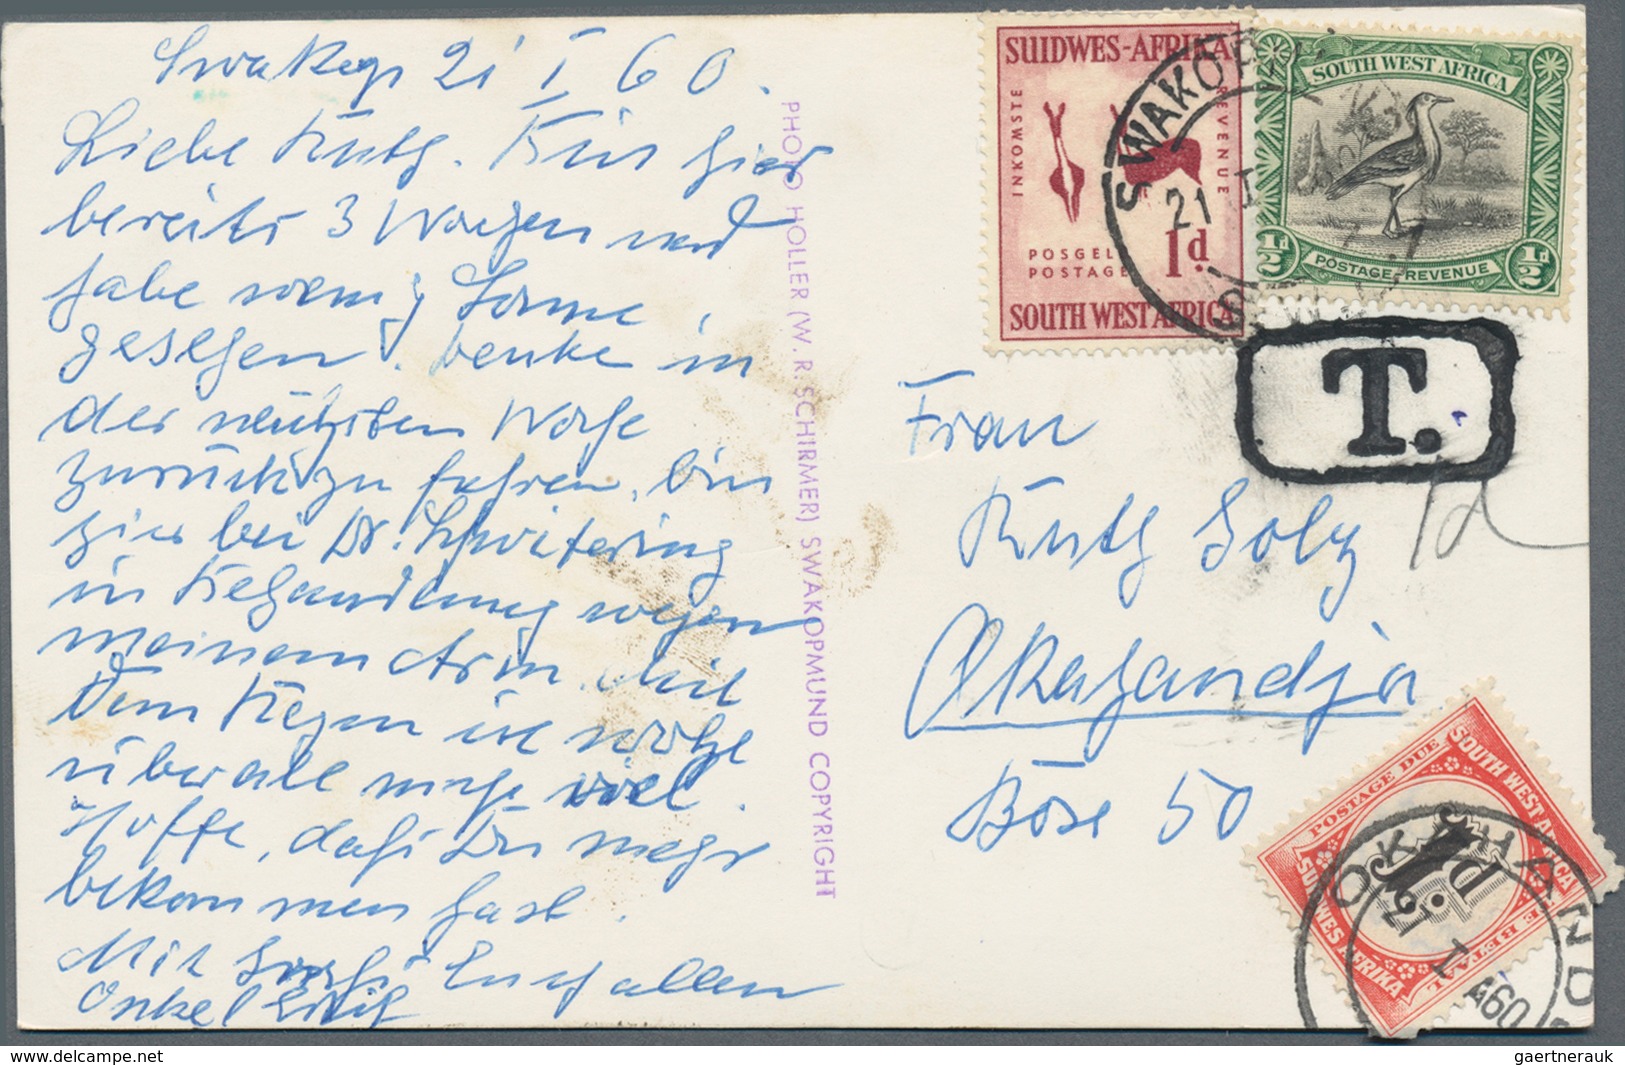 Swakop 21 I 60.
Liebe Ruth. Bin hier
bereits 3 Wochen und
habe wenig Sonne
gesehen. Denke in
der nächsten Woche
zurückzufahren, bin
hier bei Dr. Schwitering
in Behandlung wegen
meinem Arm. Mit
dem Regen ist wohl
überall nicht viel.
Hoffe, daß Du mehr
bekommen hast.
Mit Euch allen
Onkel
PHOTO HOLLER (W. R. SCHIRMER) SWAKOPMUND COPYRIGHT
SUIDWES-AFRIKA
INKOMSTE
REVENUE
POSGELD
POSTAGE
1d.
SOUTH WEST AFRICA
SOUTH WEST AFRICA
½d
½d
POSTAGE-REVENUE
SWAKOPMUND
21 I
T.
Frau
Ruth
Okahandja
Box 50
POSTAGE DUE
SOUTH WEST AFRICA
SUIDWES AFRIKA
TE BETAAL
1d.
OKAHANDJA
1 60
delcampe.net
gaertnerauk